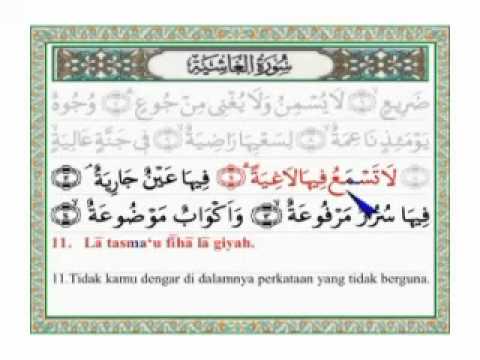 سُورَةُ الْغَاشِيَةِ
ضَرِيعٍ ۝ لَا يُسْمِنُ وَلَا يُغْنِي مِنْ جُوعٍ ۝ وُجُوهٌ
يَوْمَئِذٍ نَاعِمَةٌ ۝ لِسَعْيِهَا رَاضِيَةٌ ۝ فِي جَنَّةٍ عَالِيَةٍ ۝
لَا تَسْمَعُ فِيهَا لَاغِيَةً ۝ فِيهَا عَيْنٌ جَارِيَةٌ ۝
فِيهَا سُرُرٌ مَرْفُوعَةٌ ۝ وَأَكْوَابٌ مَوْضُوعَةٌ ۝
11. Lā tasma‘u fīhā lā giyah.
11.Tidak kamu dengar di dalamnya perkataan yang tidak berguna.